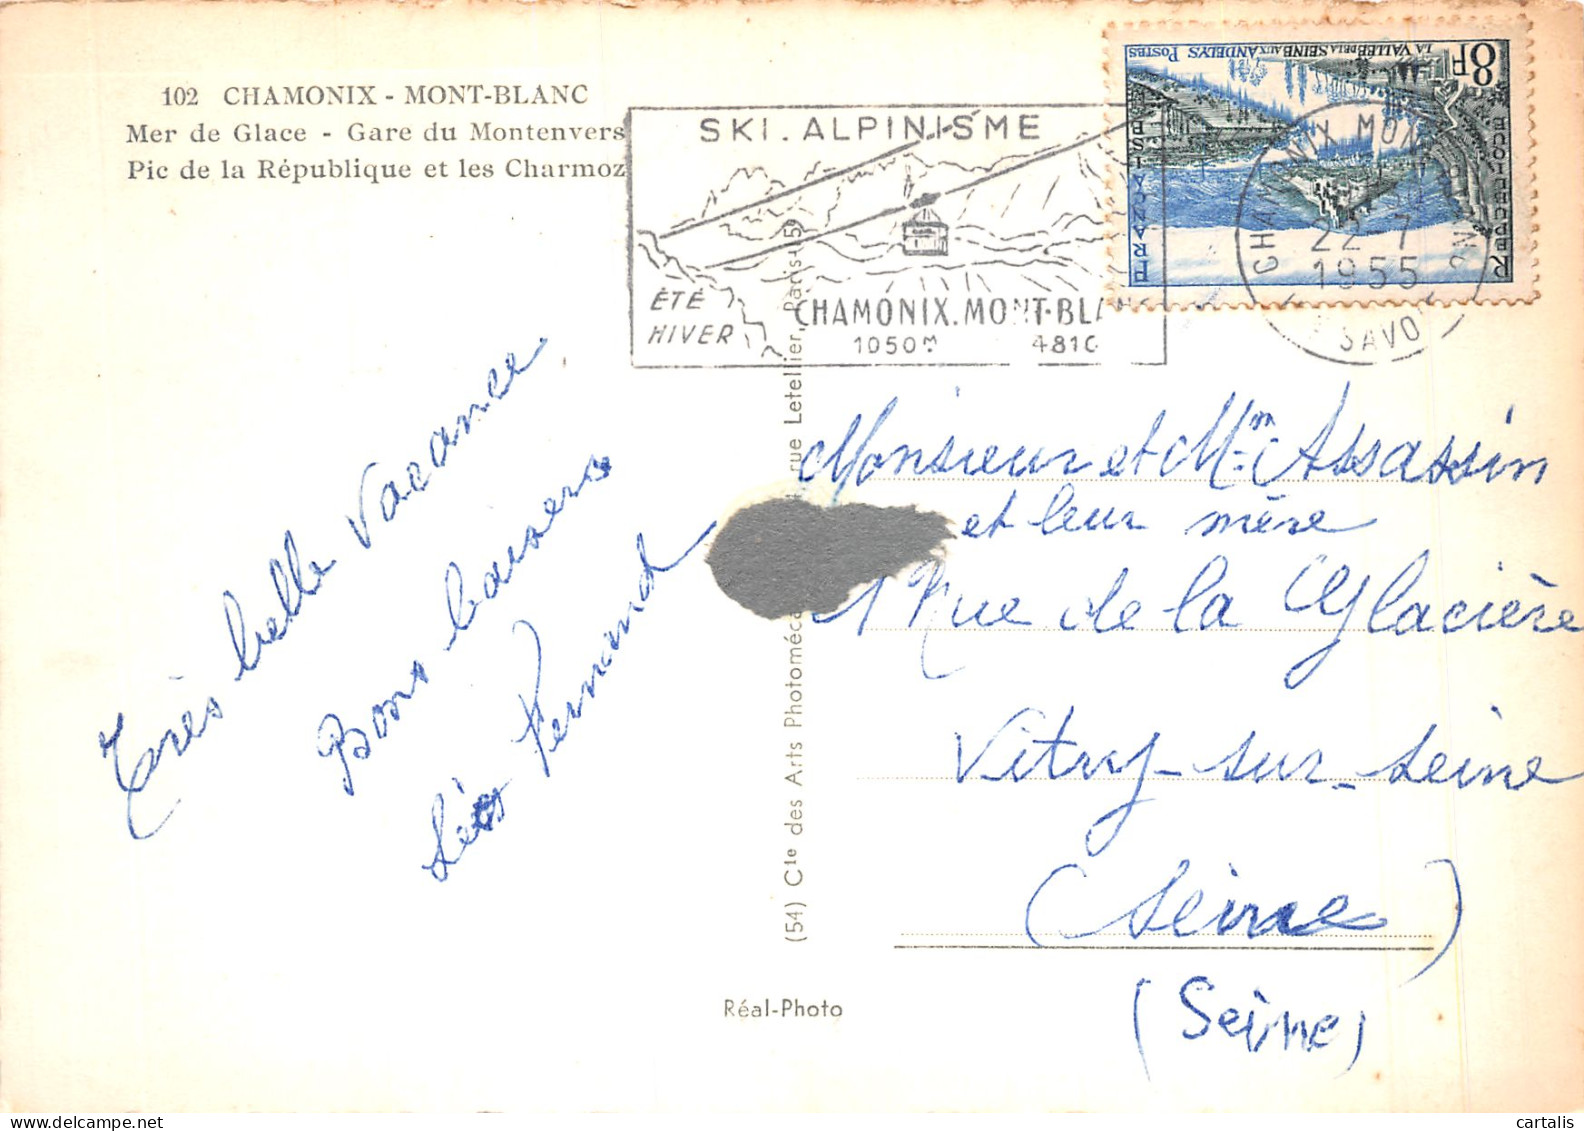 102 CHAMONIX - MONT-BLANC
Mer de Glace - Gare du Montenvers
Pic de la République et les Charmoz
SKI. ALPINISME
ÉTÉ
HIVER
CHAMONIX. MONT-BLANC
1050M 4810
CHAMONIX MON
22-7
1955
SAVO
8F
LA VALLEE DE LA SEINE AUX ANDELYS POSTES
REPUBLIQUE
FRANÇAISE
Très belle vacance
Bons baisers
Léo Fernand
(54) Cie des Arts Photoméca
rue Letellier, Paris-15e
Réal-Photo
Monsieur et Mme Assassin
et leur mère
1 Rue de la Glacière
Vitry-sur-Seine
(Seine)
(Seine)
cartalis